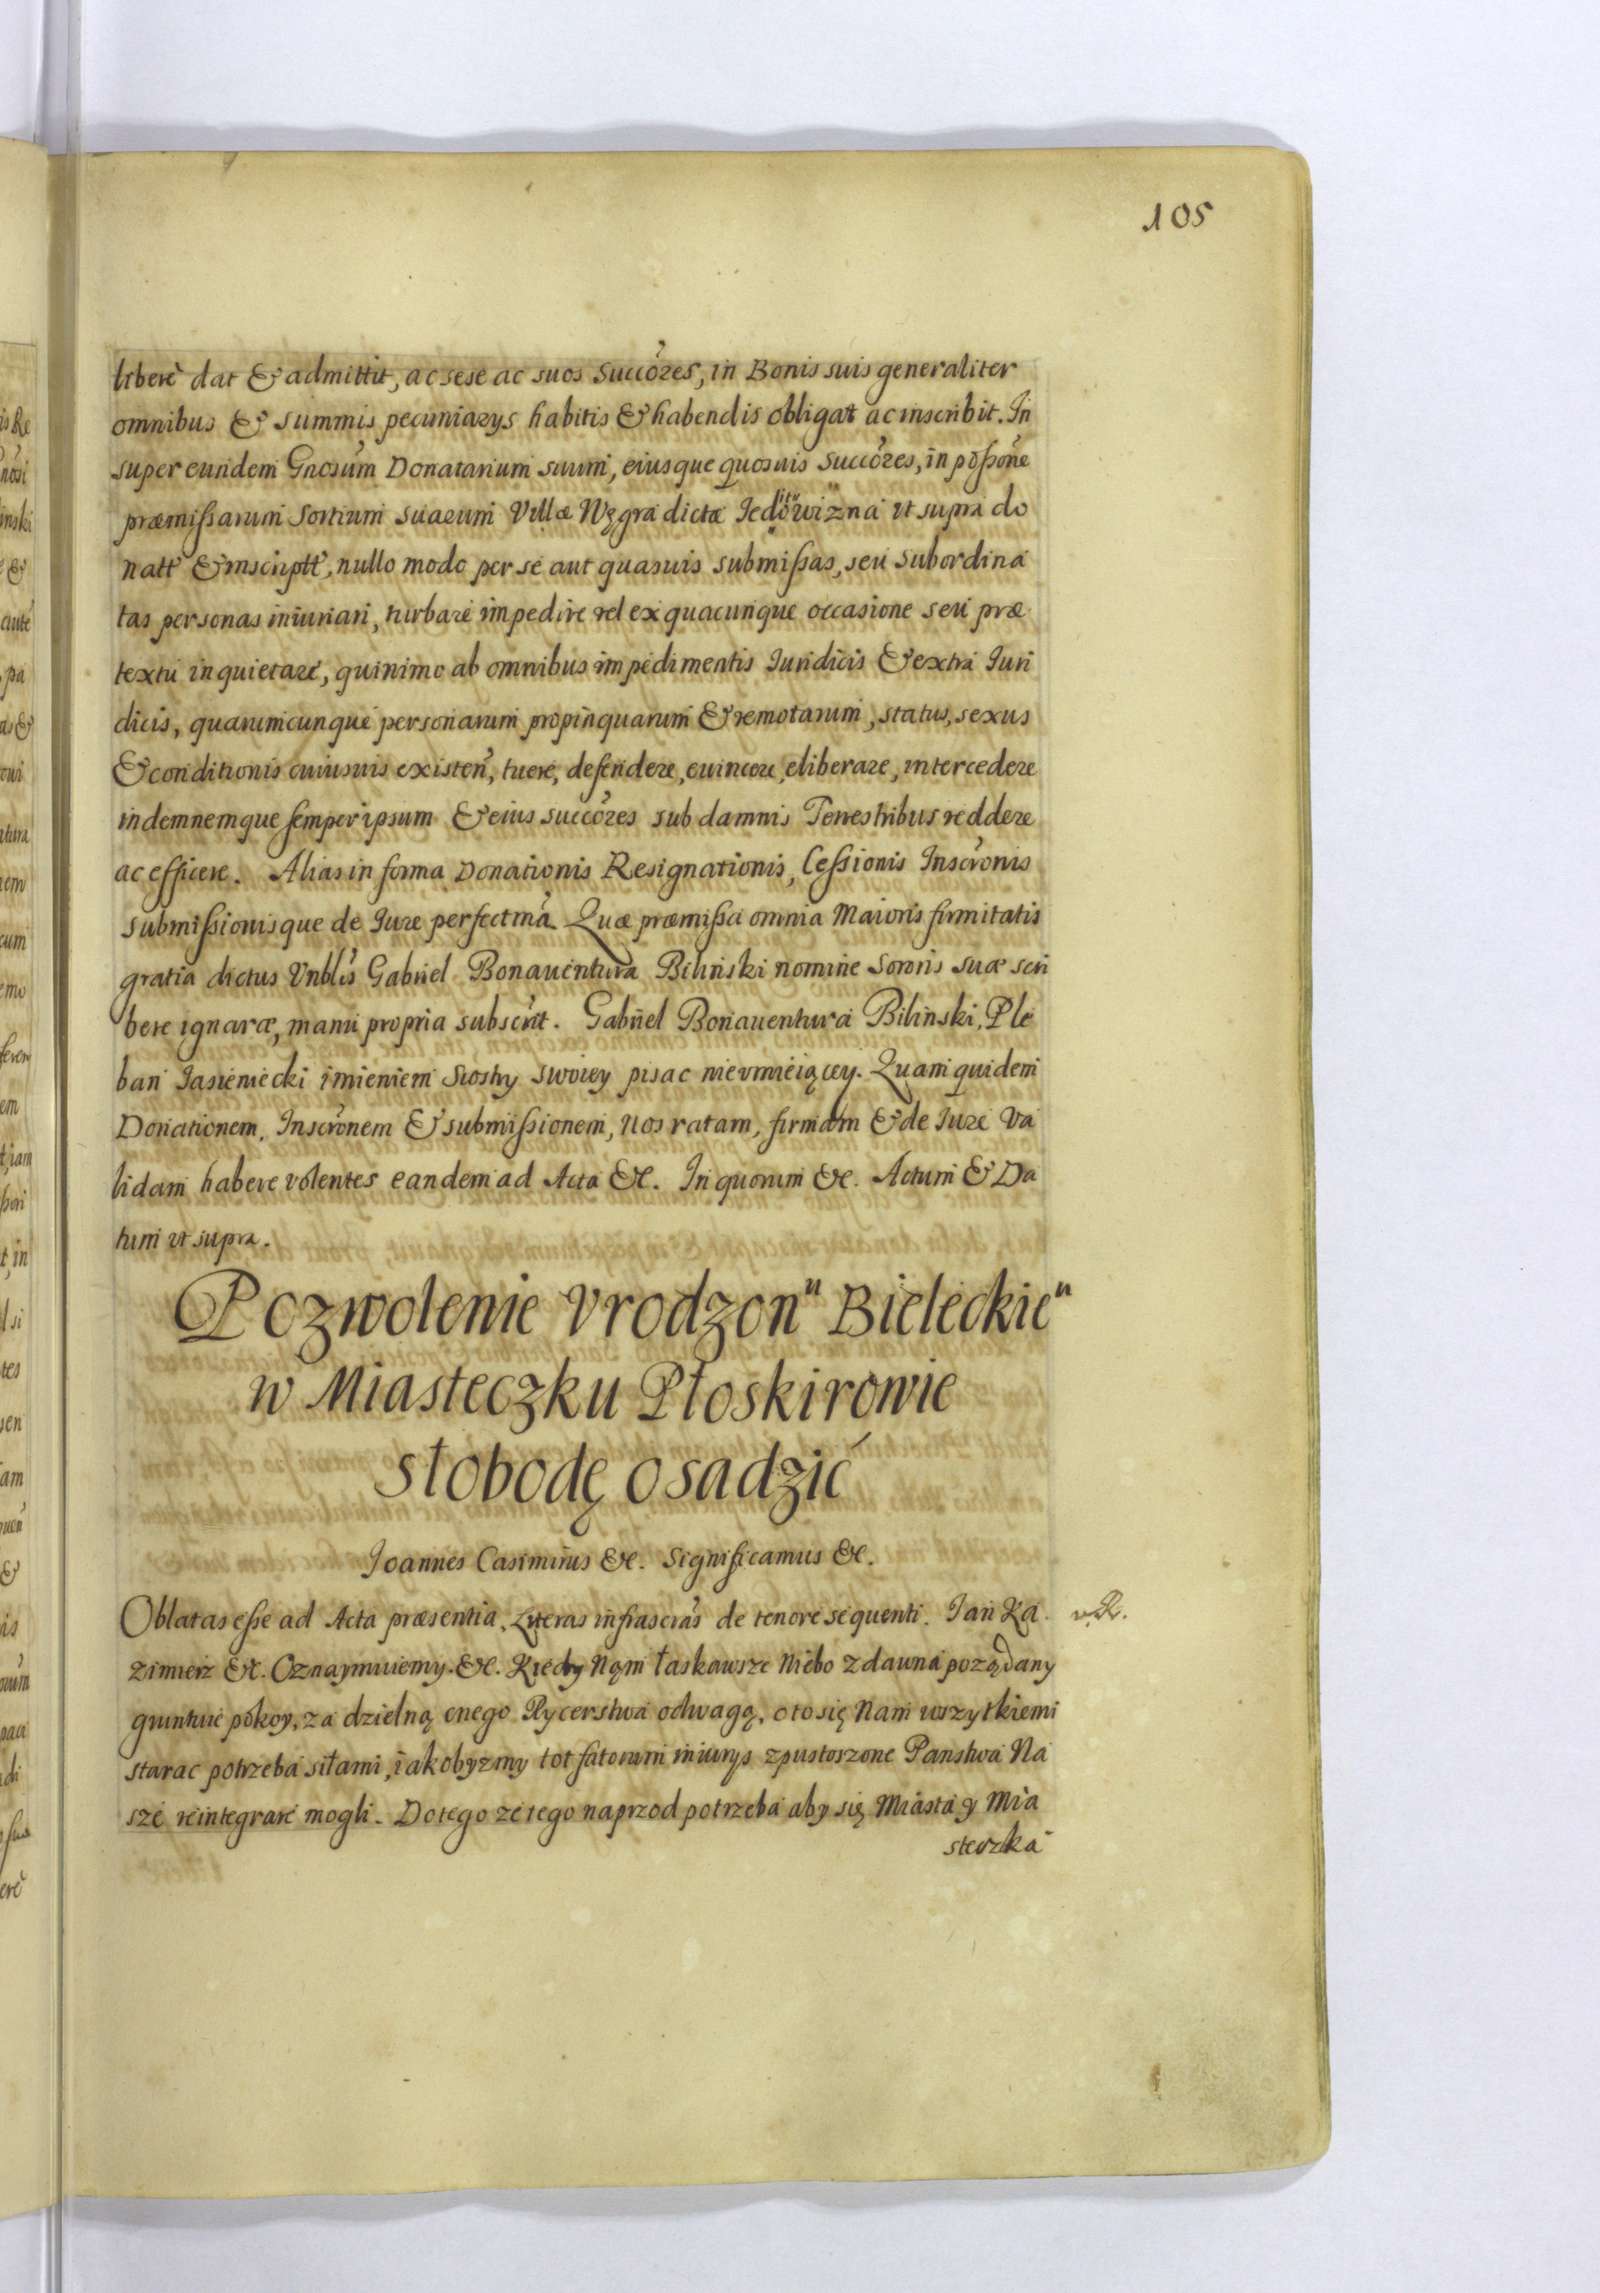 105
liberè dat & admittit, ac sese ac suos Succóres, in Bonis suis generaliter
omnibus & summis pecuniarys habitis & habendis obligat ac inscribit. In
super eundem Gnosum Donatarium suum, eiusque quosuis Succóres, in possone
præmissarum Sortium suarum Villæ Węgra dictæ Jedlitowizna ut supra do
natt & inscriptt, nullo modo per se aut quasuis submissas, seu subordina
tas personas iniuriari, turbare impedire vel ex quacunque occasione seu præ
textu inquietare, quinimo ab omnibus impedimentis Iuridicis & extra Iuri
dicis, quarumcunque personarum propinquarum & remotarum, status, sexus
& conditionis cuiusuis existen, tueri, defendere, euincere, eliberare, intercedere
indemnemque semper ipsum & eius succóres sub damnis Terrestribus reddere
ac efficere. Alias in forma Donationis Resignationis, Cessionis Inscronis
submissionisque de Jure perfectma. Quæ præmissa omnia Maioris firmitatis
gratia dictus Vnblis Gabriel Bonauentura Biliński nomine Sororis suæ scri
bere ignaræ, manu propria subscrit. Gabriel Bonauentura Biliński, Ple
ban Jasieniecki imieniem Siostry swoiey pisac nieumieiącey. Quam quidem
Donationem, Inscronem & submissionem, Nos ratam, firmam & de Jure Va
lidam habere volentes eandem ad Acta &c. In quorum &c. Actum & Da
tum ut supra.
Pozwolenie Vrodzonu Bieleckieu
w Miasteczku Płoskirowie
słobodę osadzić
Joannes Casimirus &c. Significamus &c.
Oblatas esse ad Acta præsentia, Literas infrascras de tenore sequenti. Jan Ka
zimierz &c. Oznaymuiemy. &c. Kiedy Nąm łaskawsze Niebo zdawna poządany
gruntuie pokoy, za dzielną cnego Rycerstwa odwagą, oto się Nam wszytkiemi
starac potrzeba siłami, iakobyzmy tot fatorum iniurys zpustoszone Panstwa Na
sze reintegrare mogli. Do tego ze tego naprzod potrzeba aby się Miasta y Mia
steczka